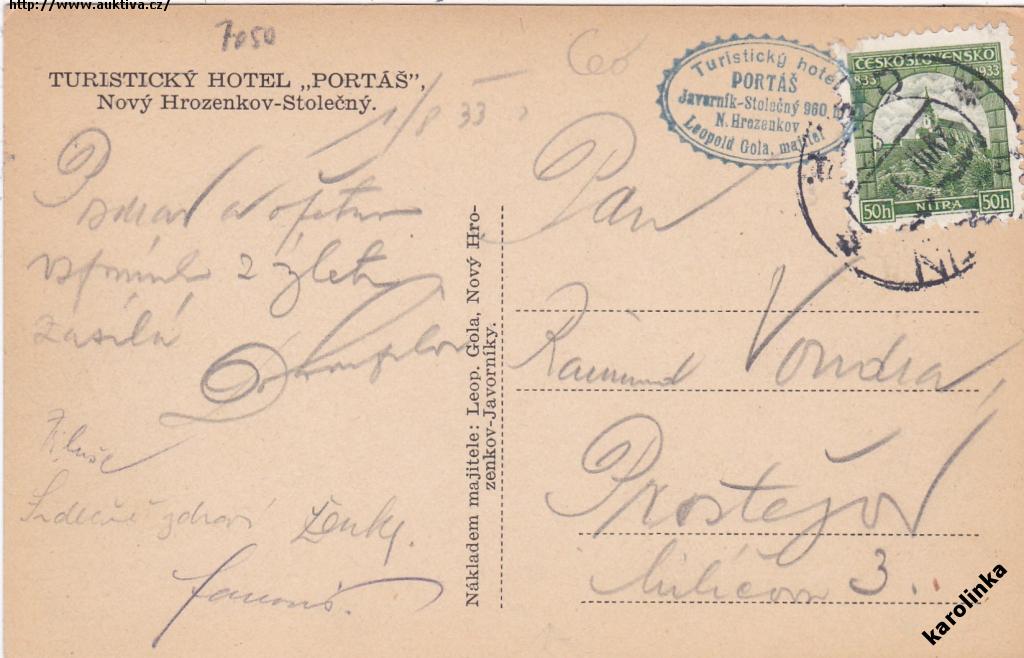 http://www.auktiva.cz/
7050
TURISTICKÝ HOTEL „PORTÁŠ",
Nový Hrozenkov-Stolečný.
1/8 33
Turistický hotel
PORTÁŠ
Javorník-Stolečný 960
N. Hrozenkov
Leopold Gola, majitel
ČESKOSLOVENSKO
833 1933
NITRA
50h 50h
Pozdrav a
vzpomínk z výletu
zasílá
Srdečně zdraví Ženky.
Nákladem majitele: Leop. Gola, Nový Hro-
zenkov-Javorníky.
Pan
Raimund Vondra,
Prostějov
Milíčova 3.
karolinka